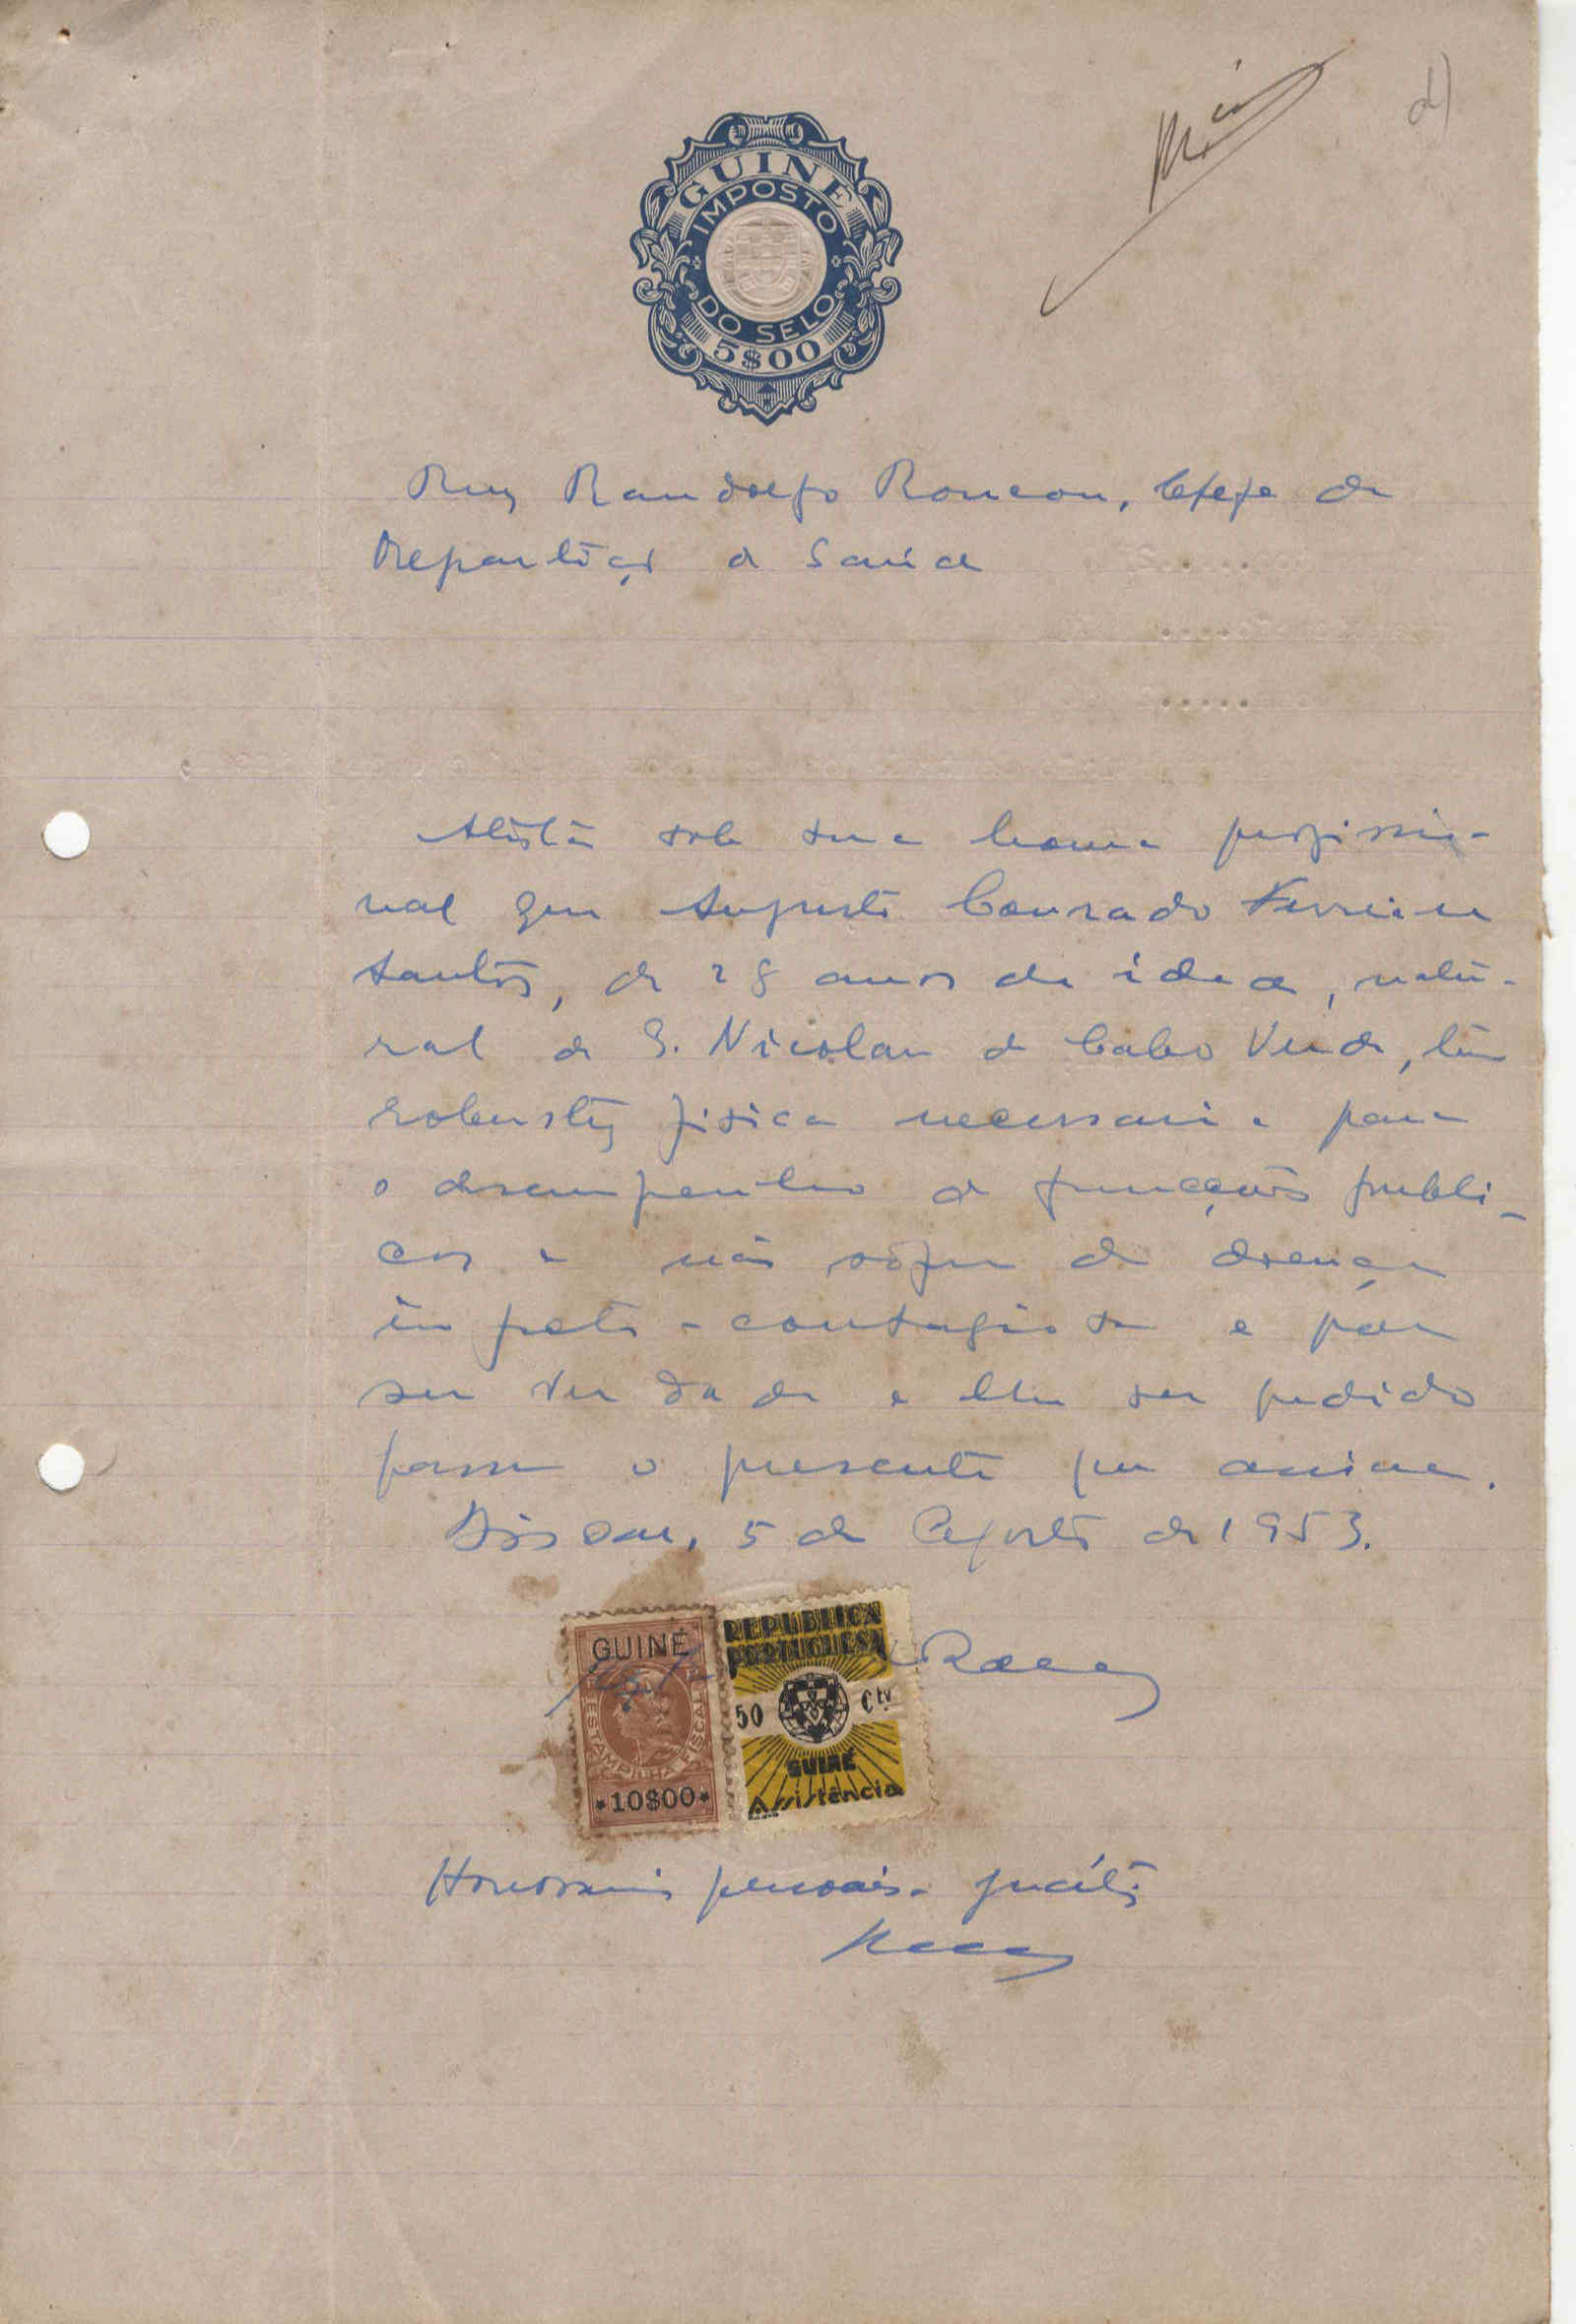 d)
GUINÉ
IMPOSTO
DO SELO
5$00
Ruy Randolfo Roncon, Chefe da
Repartição de Saúde
Atesta sob sua honra profissio-
nal que Augusto Conrado Ferreira
Santos, de 28 anos de idade, natu-
ral de S. Nicolau de Cabo Verde, tem
robustez fisica necessaria para
o desempenho de funções publi-
cas e não sofre de doença
infecto-contagiosa e por
ser verdade e lhe ser pedido
passa o presente que assina.
Bissau, 5 de Agosto de 1953.
GUINÉ
ESTAMPILHA FISCAL
*10$00*
REPUBLICA
PORTUGUESA
50 Ctv
GUINÉ
Assistência
Honorarios pessoais - gratis